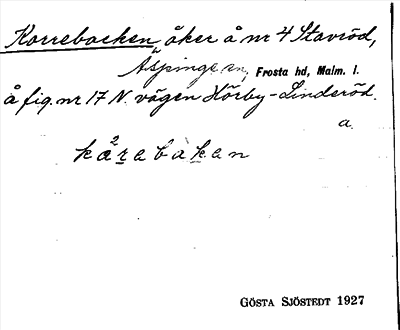 Korrebacken, åker å nr 4 Stavröd,
Äspinge sn, Frosta hd, Malm. l.
å fig. nr 17 N. vägen Hörby-Linderöd.
a.
kå²rebakan
GÖSTA SJÖSTEDT 1927